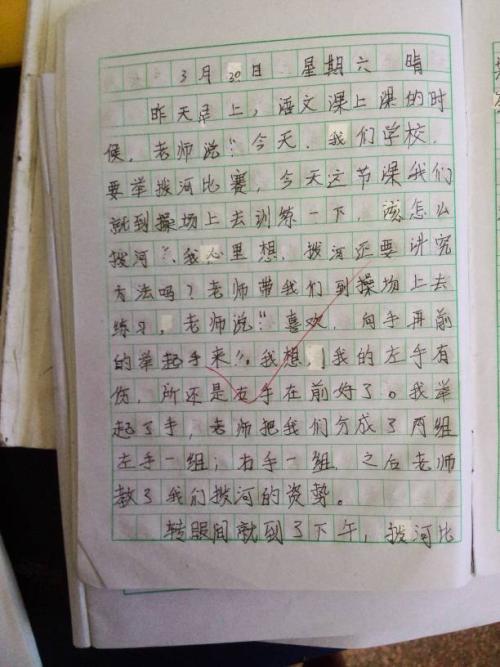 3月30日 星期六 晴
昨天早上，语文课上课的时
候，老师说：“今天，我们学校，
要举拨河比赛，今天这节课我们
就到操场上去训练一下，该怎么
拨河，我心里想，拨河还要讲究
方法吗？老师带我们到操场上去
练习，老师说“喜欢，向手再前
的举起手来”。我想，我的左手有
伤，所还是右手在前好了。我举
起了手，老师把我们分成了两组
左手一组；右手一组，之后老师
教了我们拨河的资势。
转眼间就到了下午，拨河比